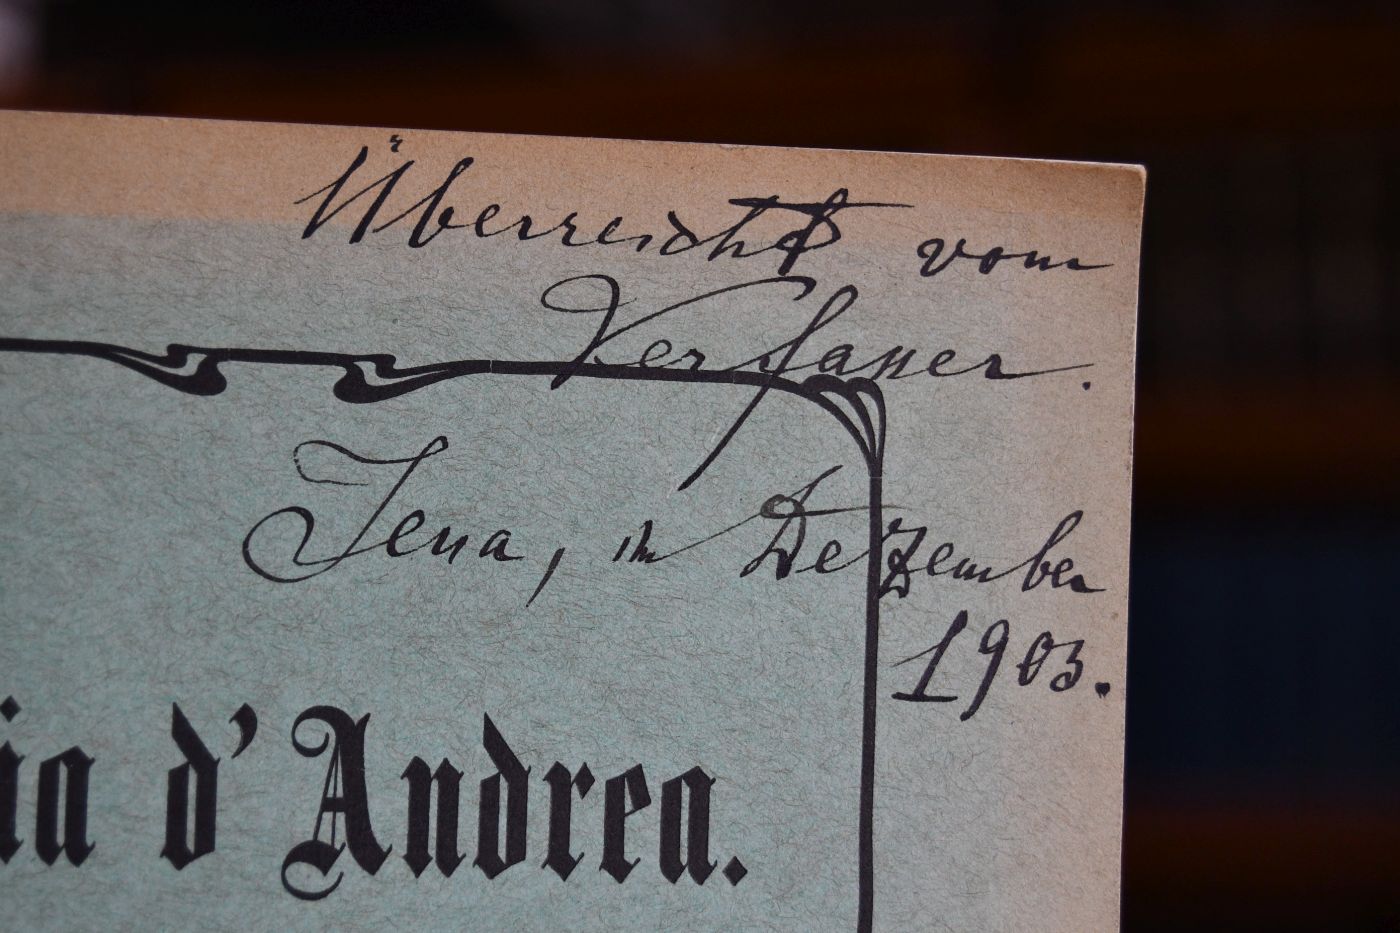 Überreicht vom
Verfasser.
Jena, im Dezember
1903.
ia d'Andrea.